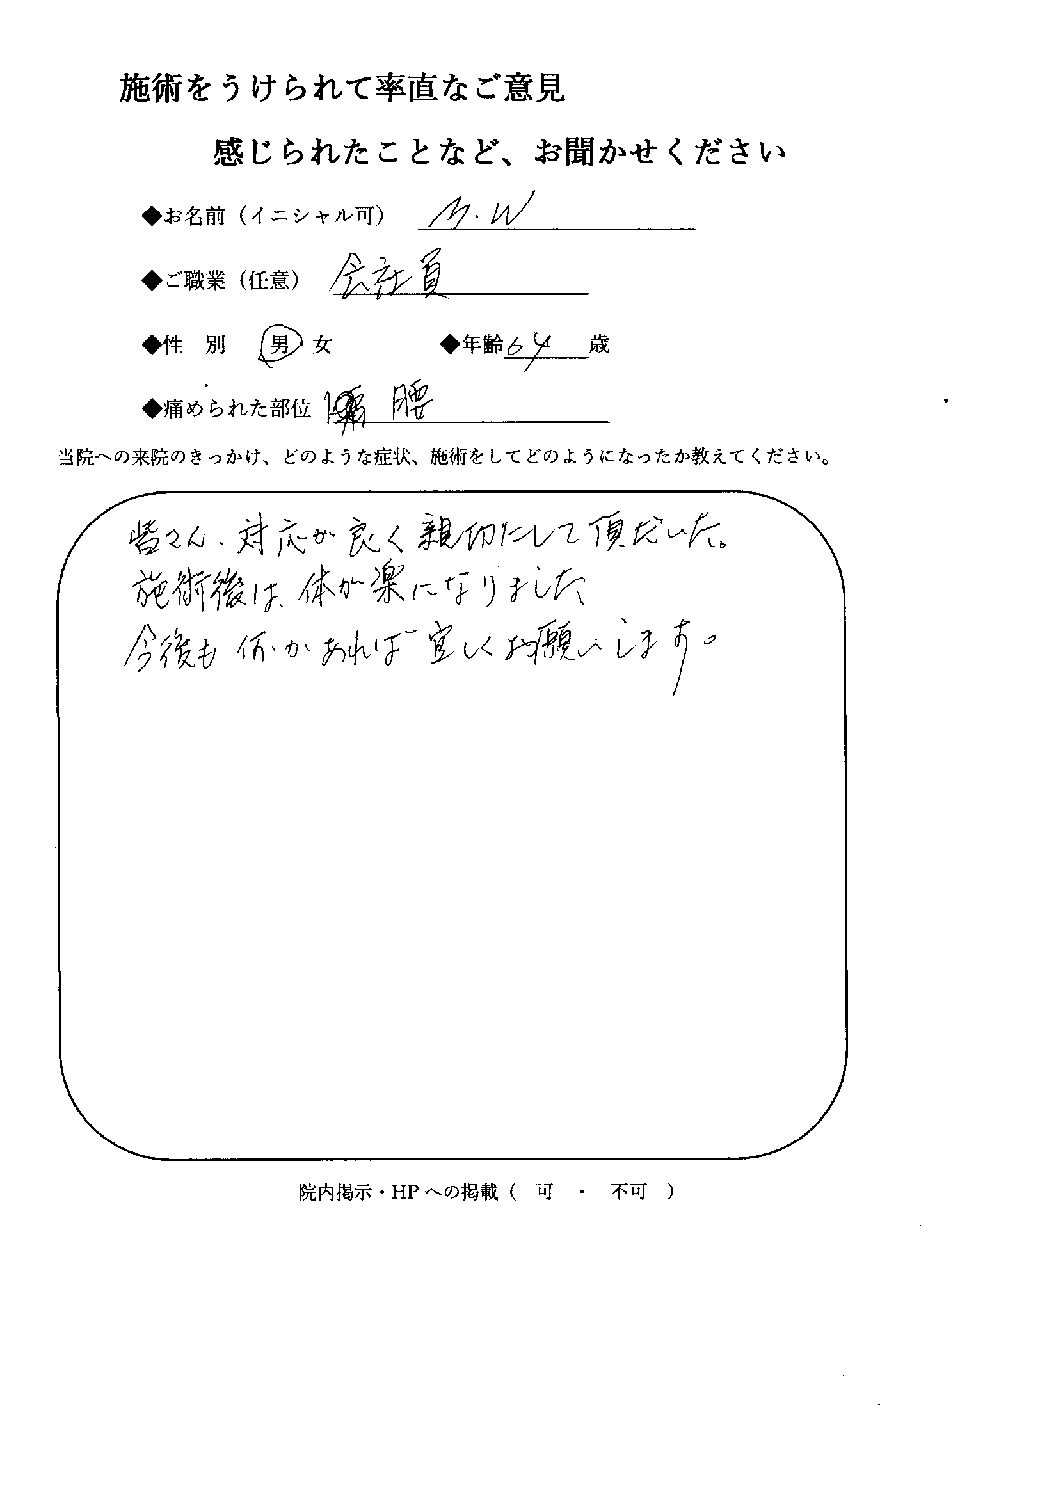 施術をうけられて率直なご意見
感じられたことなど、お聞かせください
◆お名前（イニシャル可） M.W
◆ご職業（任意） 会社員
◆性 別 男 女 ◆年齢 64 歳
◆痛められた部位 腰
当院への来院のきっかけ、どのような症状、施術をしてどのようになったか教えてください。
皆さん、対応が良く親切にして頂だいた。
施術後は、体が楽になりました
今後も何かあれば宜しくお願いします。
院内掲示・HPへの掲載（ 可 ・ 不可 ）